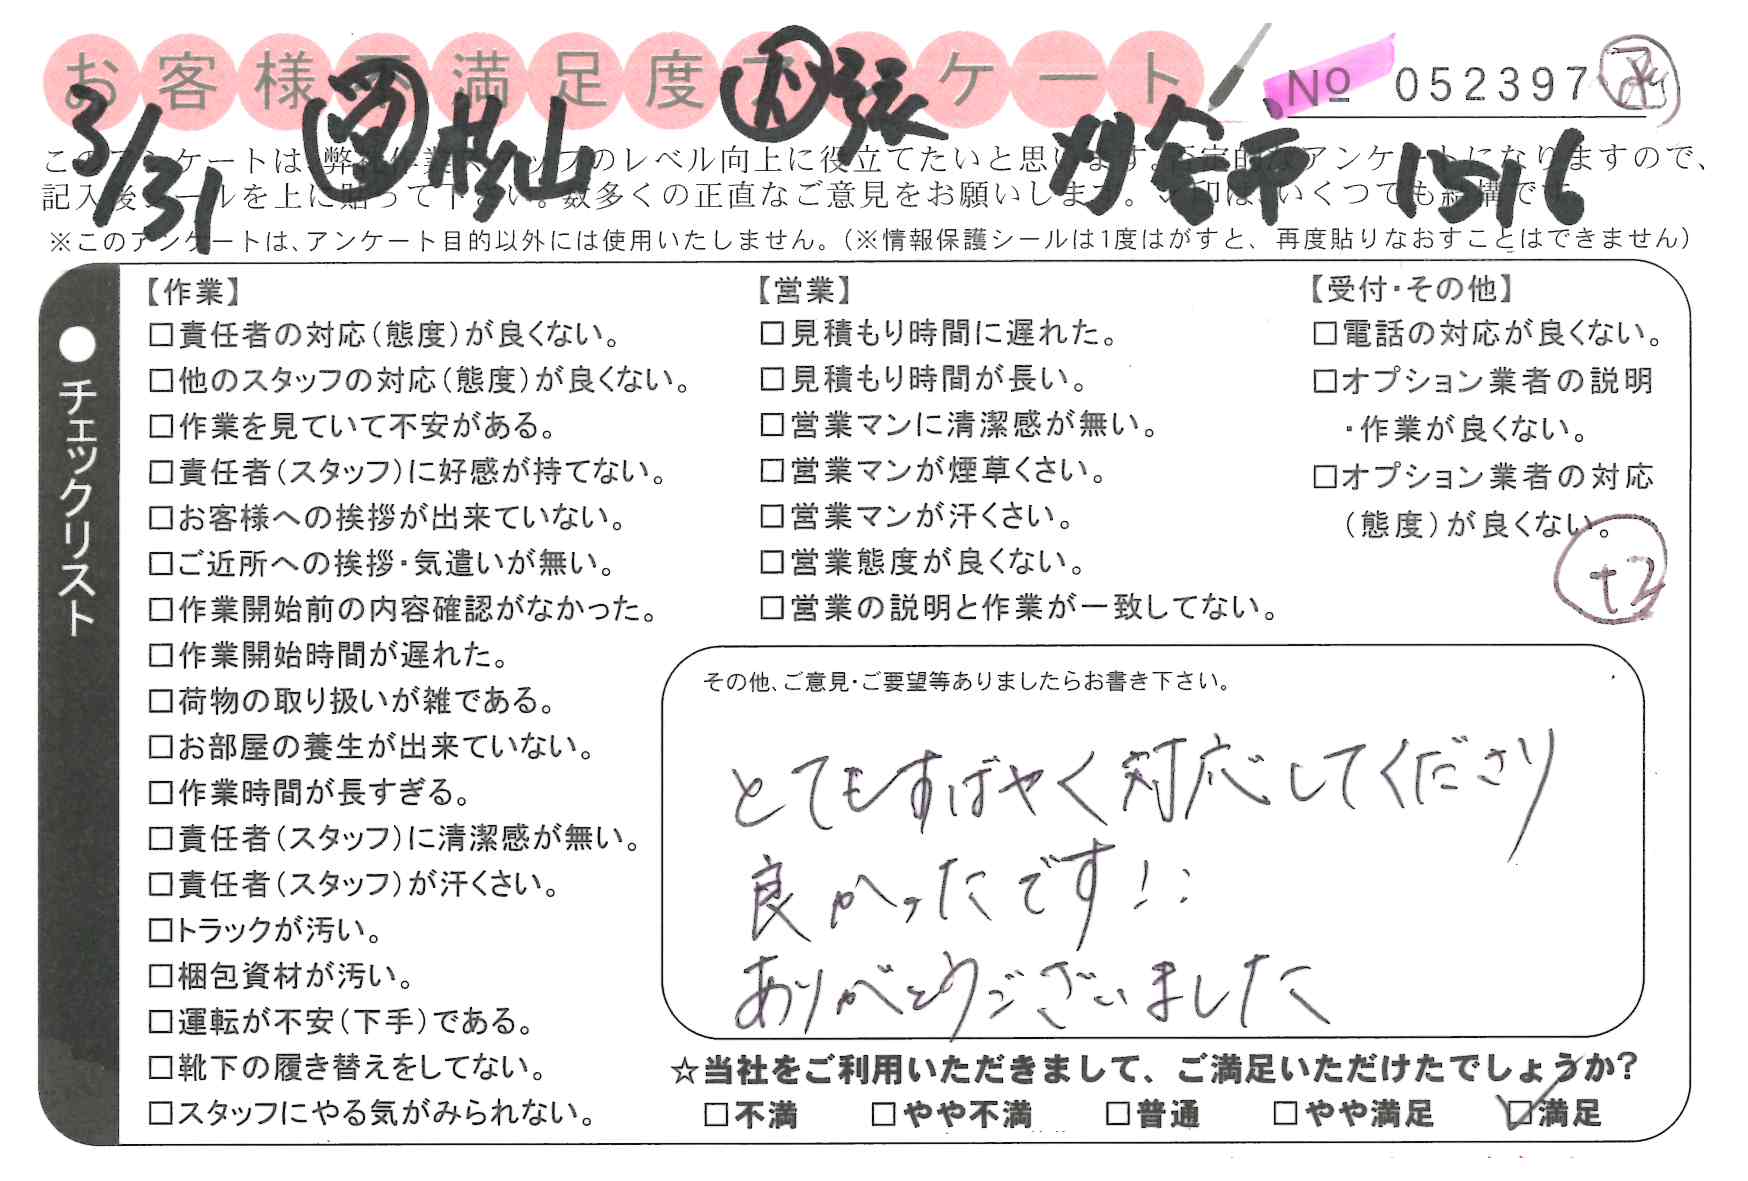 お客様不満足度アンケート
№ 052397
3/31 営 杉山 刈谷市 1516
このアンケートは、弊社作業スタッフのレベル向上に役立てたいと思います。不定的なアンケートになりますので、
記入後シールを上に貼って下さい。数多くの正直なご意見をお願いします。✓印は、いくつでも結構です。
※このアンケートは、アンケート目的以外には使用いたしません。(※情報保護シールは1度はがすと、再度貼りなおすことはできません)
●チェックリスト
【作業】
□責任者の対応(態度)が良くない。
□他のスタッフの対応(態度)が良くない。
□作業を見ていて不安がある。
□責任者(スタッフ)に好感が持てない。
□お客様への挨拶が出来ていない。
□ご近所への挨拶・気遣いが無い。
□作業開始前の内容確認がなかった。
□作業開始時間が遅れた。
□荷物の取り扱いが雑である。
□お部屋の養生が出来ていない。
□作業時間が長すぎる。
□責任者(スタッフ)に清潔感が無い。
□責任者(スタッフ)が汗くさい。
□トラックが汚い。
□梱包資材が汚い。
□運転が不安(下手)である。
□靴下の履き替えをしてない。
□スタッフにやる気がみられない。
【営業】
□見積もり時間に遅れた。
□見積もり時間が長い。
□営業マンに清潔感が無い。
□営業マンが煙草くさい。
□営業マンが汗くさい。
□営業態度が良くない。
□営業の説明と作業が一致してない。
【受付・その他】
□電話の対応が良くない。
□オプション業者の説明
・作業が良くない。
□オプション業者の対応
(態度)が良くない。
+2
その他、ご意見・ご要望等ありましたらお書き下さい。
とてもすばやく対応してくださり
良かったです!!
ありがとうございました
☆当社をご利用いただきまして、ご満足いただけたでしょうか?
□不満 □やや不満 □普通 □やや満足 ☑満足